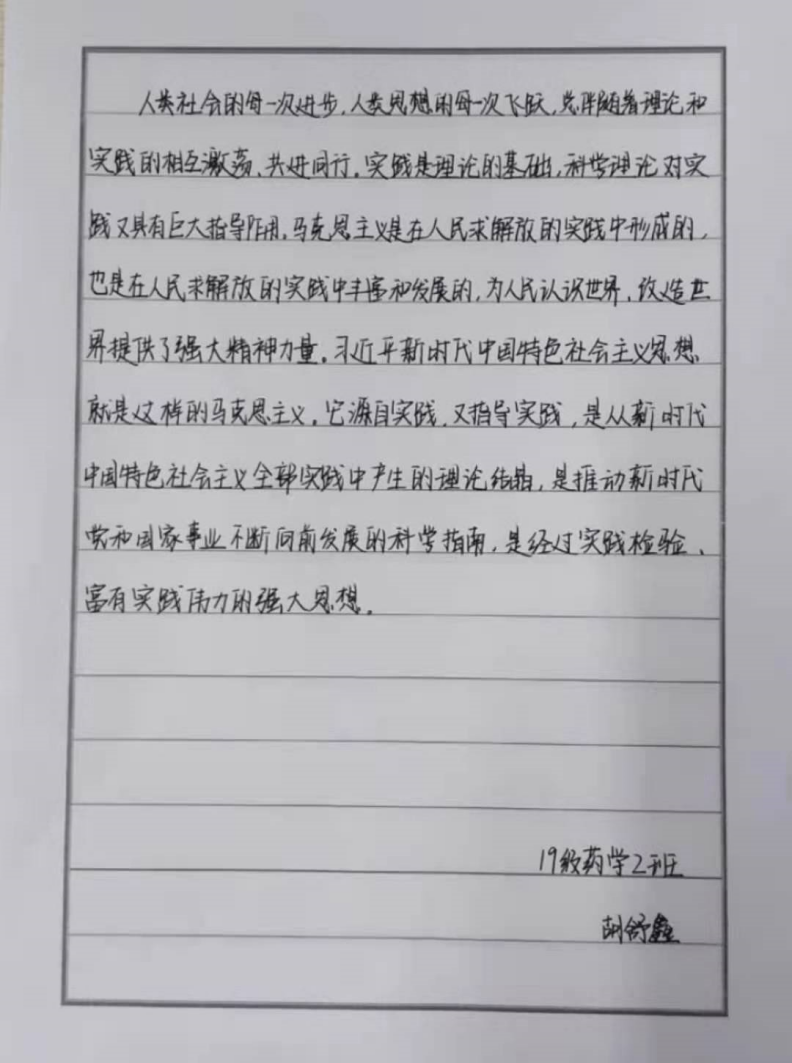 人类社会的每一次进步,人类思想的每一次飞跃,总伴随着理论和
实践的相互激荡、共进同行。实践是理论的基础,科学理论对实
践又具有巨大指导作用。马克思主义是在人民求解放的实践中形成的,
也是在人民求解放的实践中丰富和发展的,为人民认识世界、改造世
界提供了强大精神力量。习近平新时代中国特色社会主义思想
就是这样的马克思主义。它源自实践、又指导实践,是从新时代
中国特色社会主义全部实践中产生的理论结晶,是推动新时代
党和国家事业不断向前发展的科学指南,是经过实践检验、
富有实践伟力的强大思想。
19级药学2班
胡舒鑫